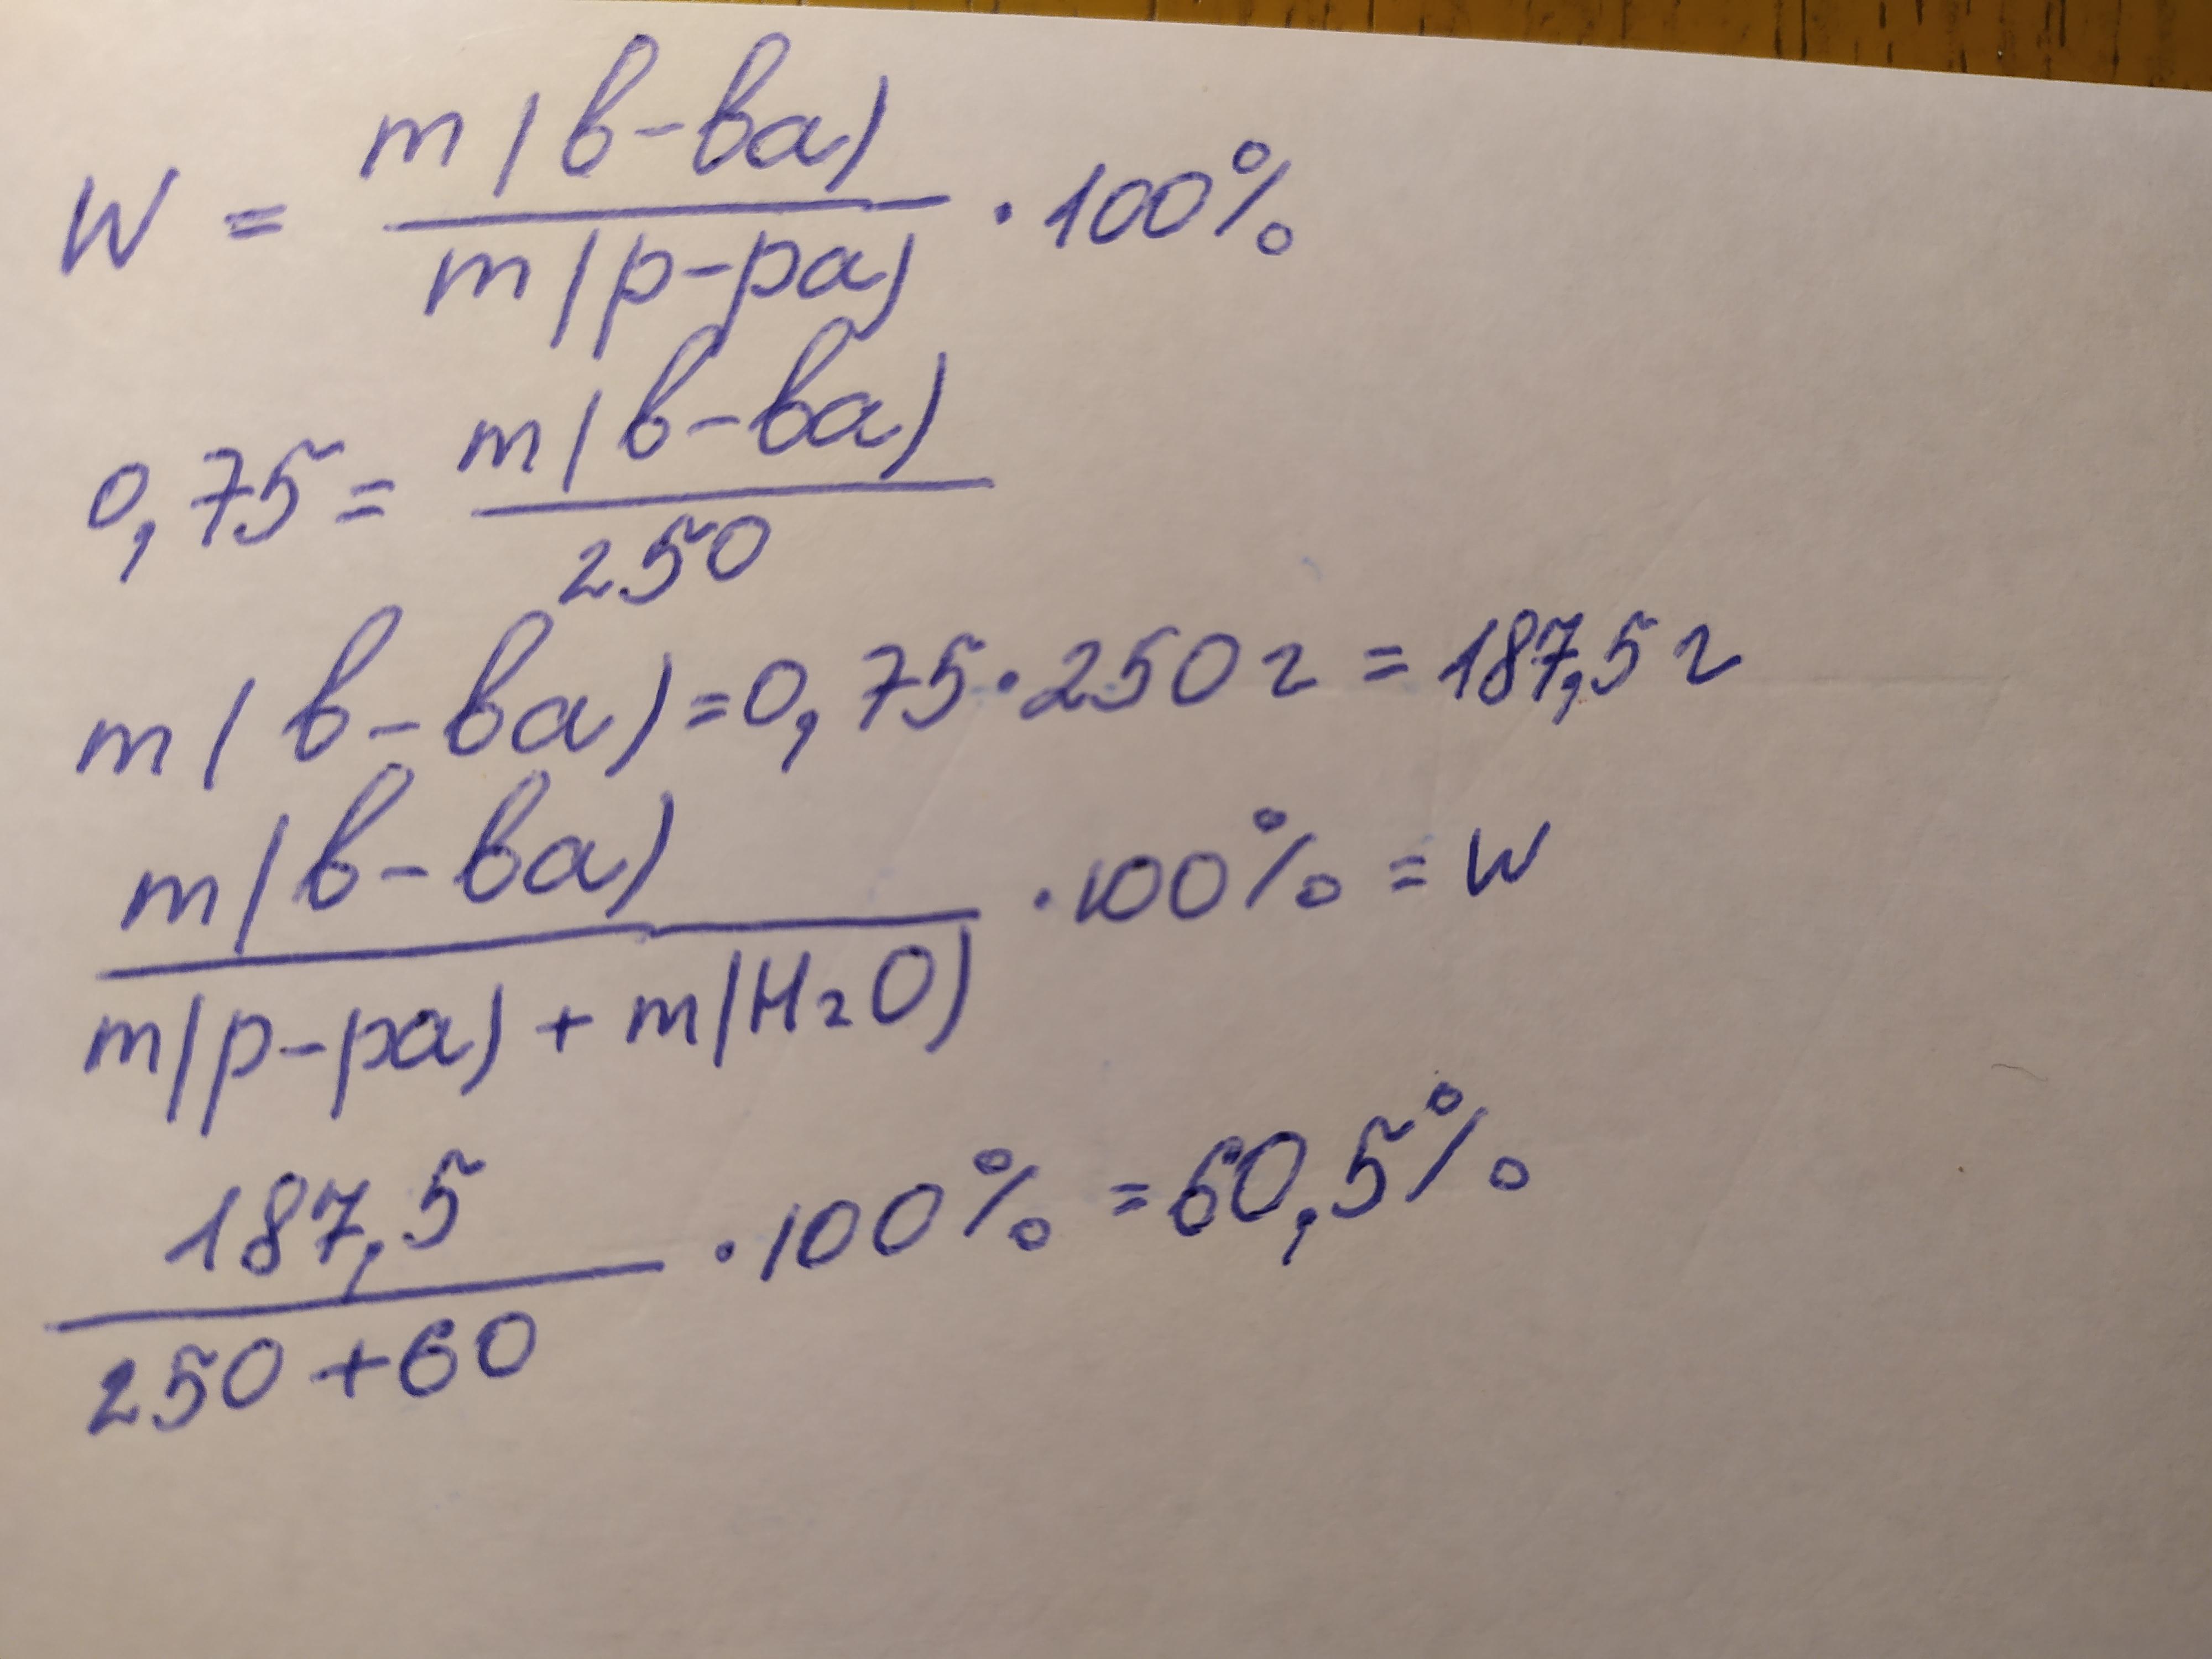 W = m(в-ва) / m(р-ра) · 100%
0,75 = m(в-ва) / 250
m(в-ва) = 0,75 · 250 г = 187,5 г
m(в-ва) / m(р-ра) + m(H2O) · 100% = W
187,5 / 250 + 60 · 100% = 60,5%